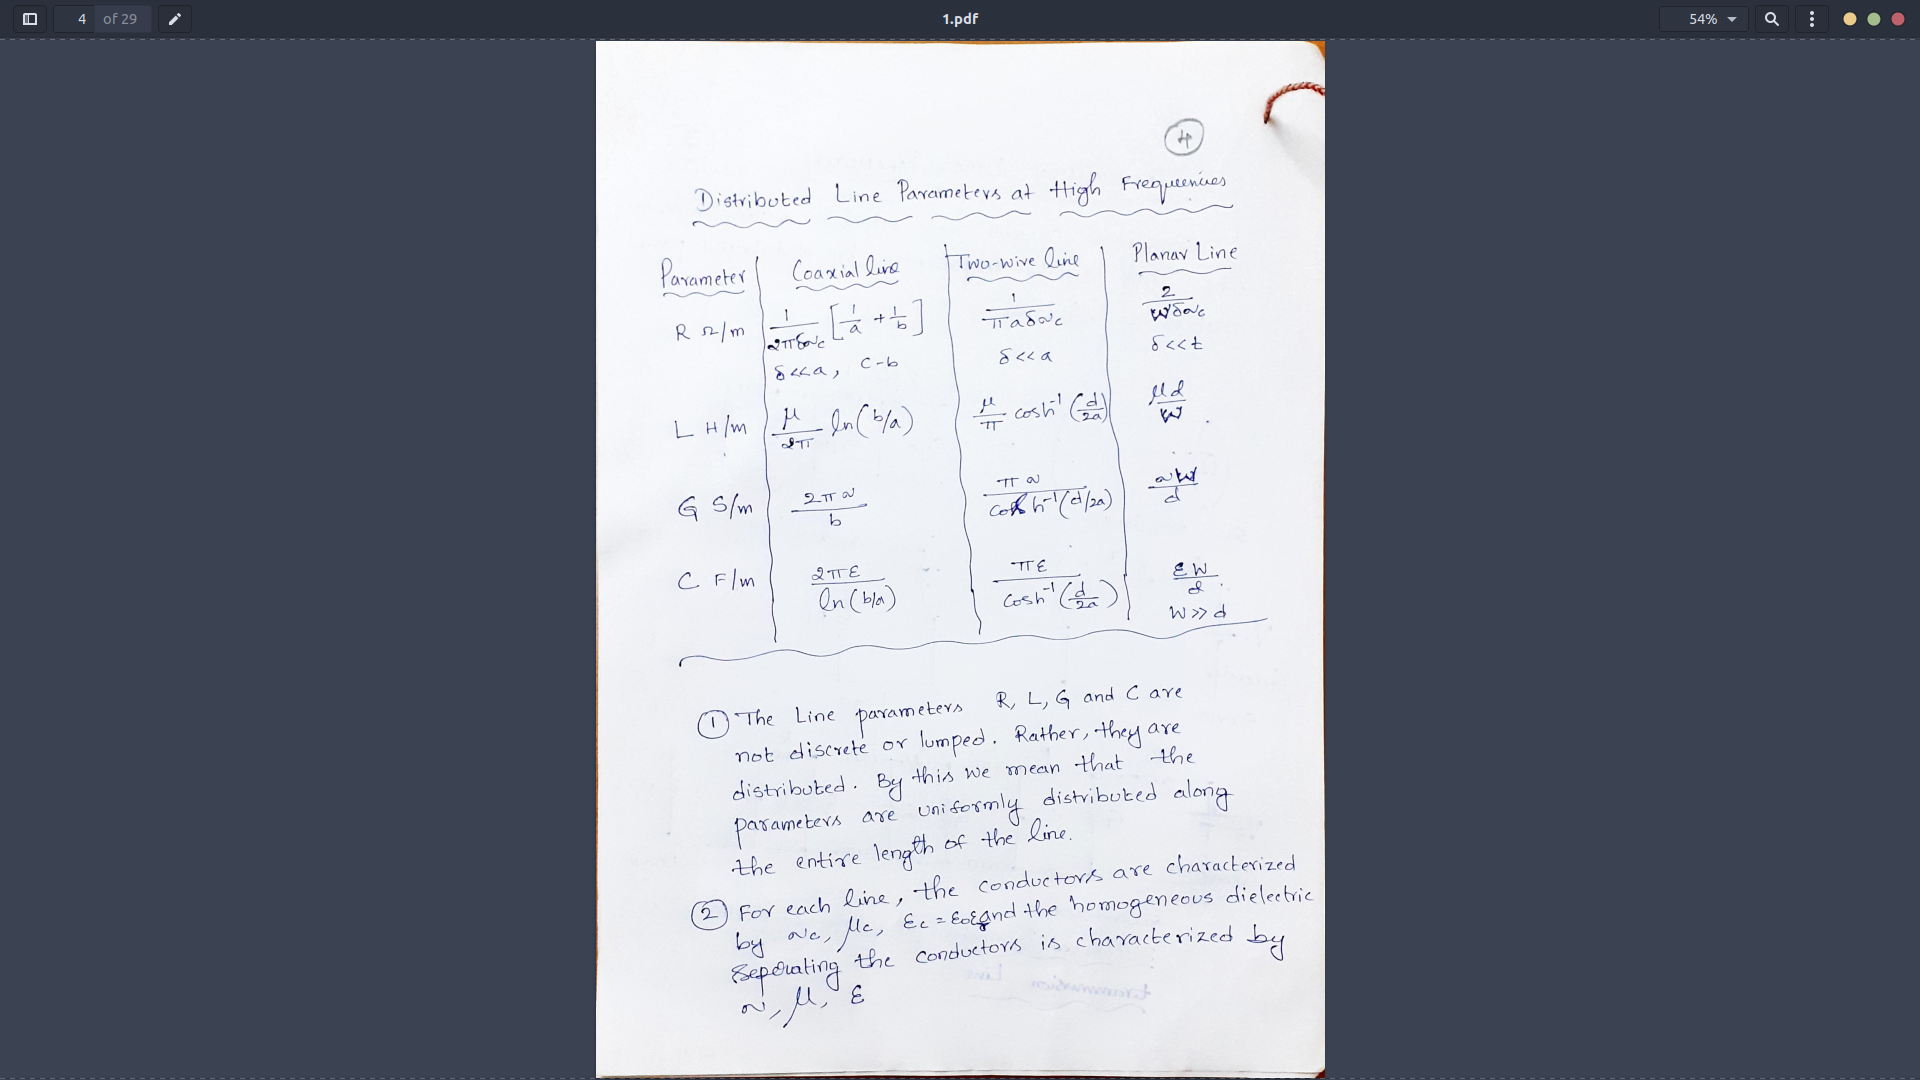 4 of 29
1.pdf
54%
4
Distributed Line Parameters at High Frequencies
Parameter Coaxial line Two-wire line Planar Line
R Ω/m 1/2πδσc [1/a + 1/b] 1/πaδσc 2/Wδσc
δ<<a, c-b δ<<a δ<<t
L H/m μ/2π ln(b/a) μ/π cosh⁻¹(d/2a) μd/W
G S/m 2πσ/b πσ/cosh⁻¹(d/2a) σW/d
C F/m 2πε/ln(b/a) πε/cosh⁻¹(d/2a) εW/d
W>>d
① The Line parameters R, L, G and C are
not discrete or lumped. Rather, they are
distributed. By this we mean that the
parameters are uniformly distributed along
the entire length of the line.
② For each line, the conductors are characterized
by σc, μc, εc = ε0 and the homogeneous dielectric
Seperating the conductors is characterized by
σ, μ, ε